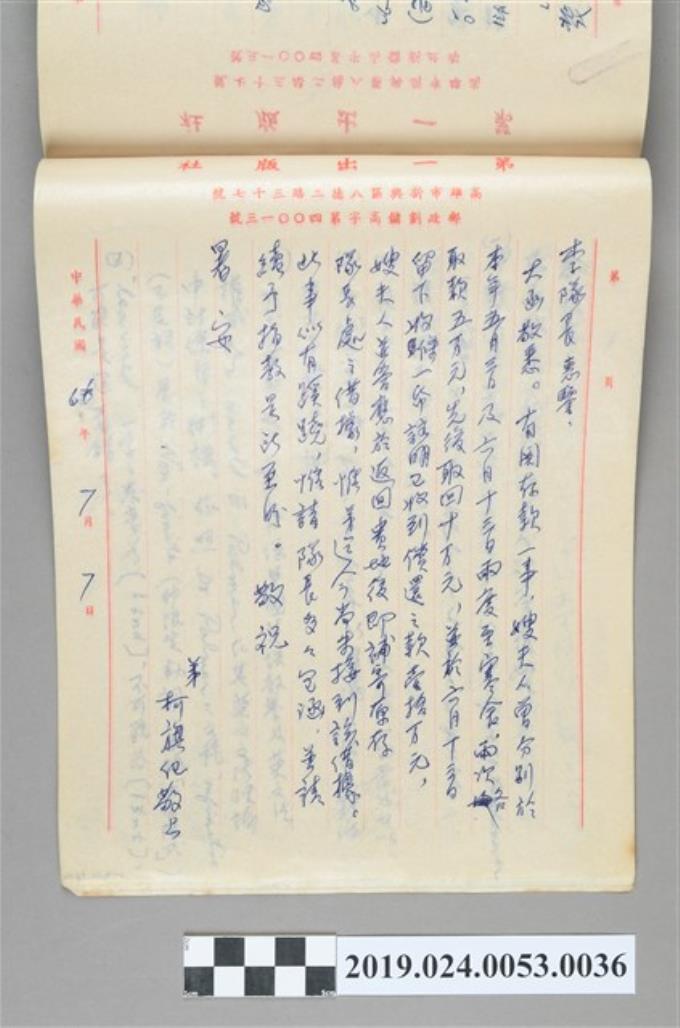 第一出版社
高雄市新興區八德二路三十七號
郵政劃儲高字第四〇〇一三號
第 頁
李隊長惠鑒:
大函敬悉。有關存款一事,嫂夫人曾分別於
本年五月三日及六月十三日兩度至寒舍,兩次各
取款五万元,先後取回十万元,並於六月十三日
留下收據一紙註明已收到償還之款壹拾万元,
嫂夫人並答應於返回貴地後即補寄原存
隊長處之借據,惟弟迄今尚未接到該借據。
此事似有蹊蹺,惟請隊長多多包涵,並請
續予指教是所至盼。敬祝
暑安
弟
柯旗化敬上
中華民國 66 年 7 月 7 日
2019.024.0053.0036